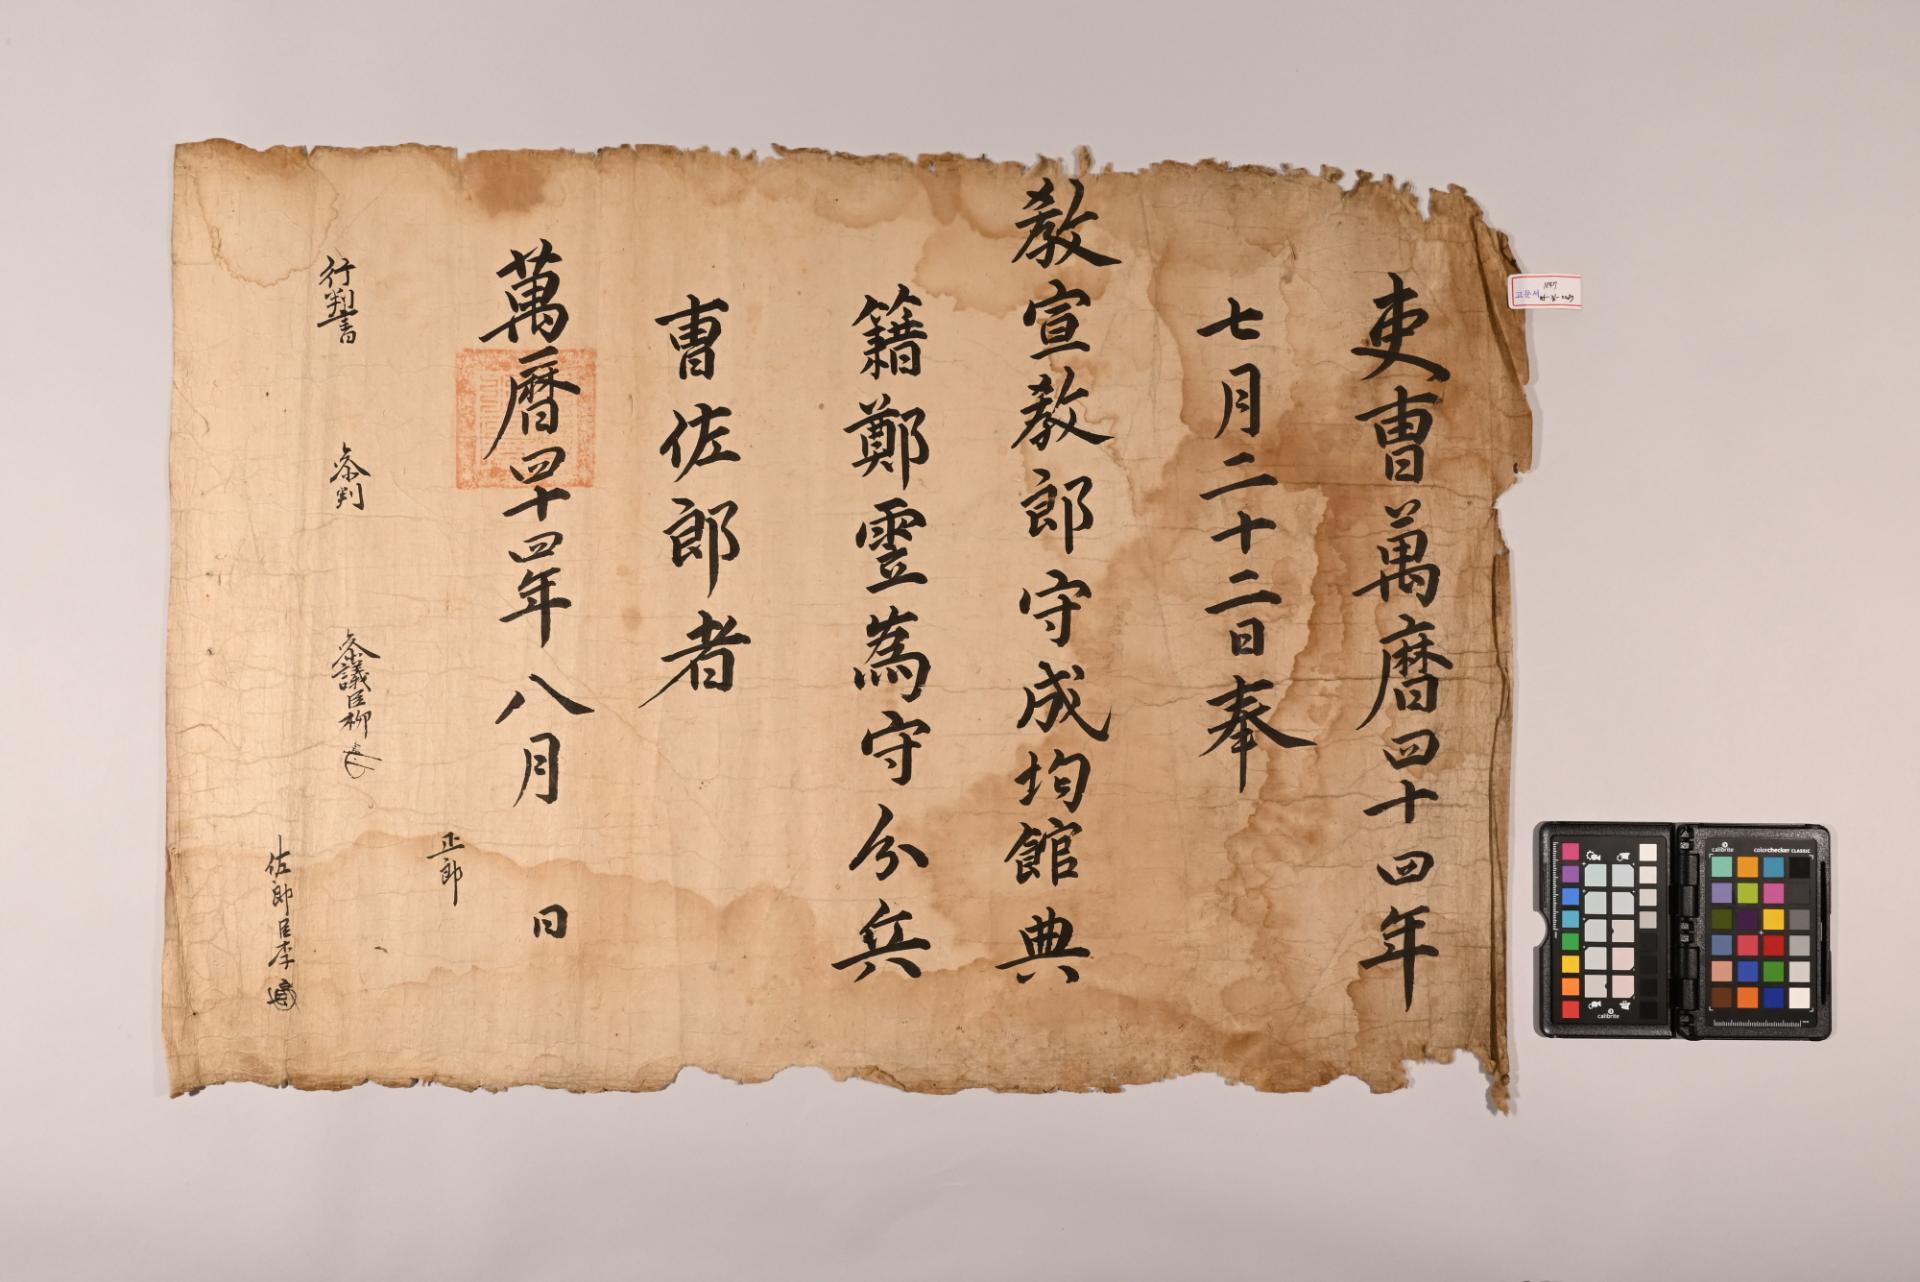 吏曺萬曆四十四年
七月二十二日奉
敎宣敎郎守成均館典
籍鄭霊為守分兵
曺佐郎者
萬曆四十四年八月 日
正郎
行判書 叅判 叅議臣柳
佐郎臣李
고문서
calibrite
calibrite
calibrite
colorchecker CLASSIC